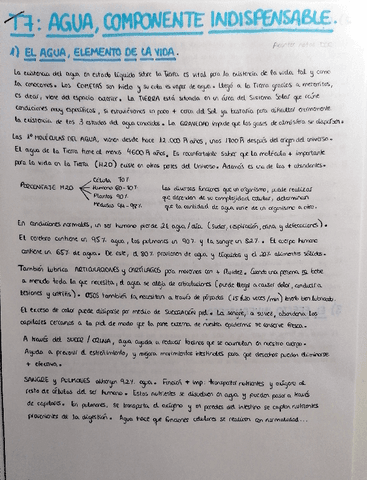 T7: AGUA, COMPONENTE INDISPENSABLE.
1) EL AGUA, ELEMENTO DE LA VIDA.
La existencia del agua en estado líquido sobre la Tierra es vital para la existencia de la vida, tal y como
la conocemos. Los COMETAS son hielo y su cola es vapor de agua. Llegó a la Tierra gracias a meteoritos,
es decir, viene del espacio exterior. La TIERRA está situada en un área del Sistema Solar que reúne
condiciones muy específicas, si estuviésemos un poco + cerca del Sol ya bastaría para dificultar enormemente
la existencia de los 3 estados del agua conocidos. La GRAVEDAD impide que los gases de atmósfera se dispersen.
Las 1ª MOLÉCULAS DEL AGUA, vienen desde hace 12.000 A años, unos 1700 A después del origen del universo.
El agua de la Tierra tiene al menos 4600 A años. Es reconfortante saber que la molécula + importante
para la vida en la Tierra (H2O) existe en otras partes del Universo. Además es una de las + abundantes.
PORCENTAJE H2O
CÉLULA 70%
Humano 60-70%
Plantas 90%
Medusas 94-98%
Las diversas funciones que un organismo, puede realizar
que dependen de su complejidad celular, determinan
que la cantidad de agua varíe de un organismo a otro.
En condiciones normales, un ser humano pierde 2L agua/día (sudor, respiración, orina, y defecaciones).
El cerebro contiene un 95% agua, los pulmones un 90% y la sangre un 82%. El cuerpo humano
contiene un 65% de agua. De este, el 80% proviene de agua y líquidos y el 20% alimentos sólidos.
También lubrica ARTICULACIONES y CARTÍLAGOS para movernos con + fluidez. Cuando una persona no bebe
a menudo toda la que necesita, el agua se aleja de articulaciones (puede llegar a causar dolor, conduce a
lesiones y artritis). OJOS también la necesitan a través de párpados (15.120 veces/min) tendrá bien lubricado.
El exceso de calor puede disiparse por medio de SUDORACIÓN piel. La sangre, a su vez, abandona los
capilares cercanos a la piel de modo que la parte externa de nuestra epidermis se conserve fresca.
A través del SUDOR / ORINA, agua ayuda a reducir toxinas que se acumulan en nuestro cuerpo.
Ayuda a prevenir el estreñimiento, y mejora movimientos intestinales para que desechos puedan eliminarse
+ efectiva.
SANGRE y PULMONES albergan 92% agua. Función + imp: transportar nutrientes y oxígeno al
resto de células del ser humano. Estos nutrientes se disuelven en agua y pueden pasar a través
de capilares. En pulmones, se transporta el oxígeno y en paredes del intestino se captan nutrientes
provenientes de la digestión. Agua hace que funciones celulares se realicen con normalidad...